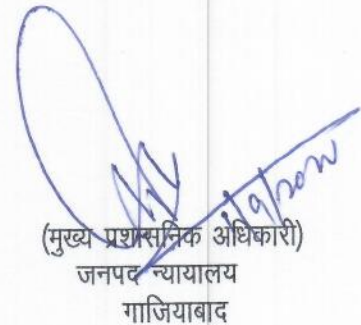 (मुख्य प्रशासनिक अधिकारी)
जनपद न्यायालय
गाजियाबाद